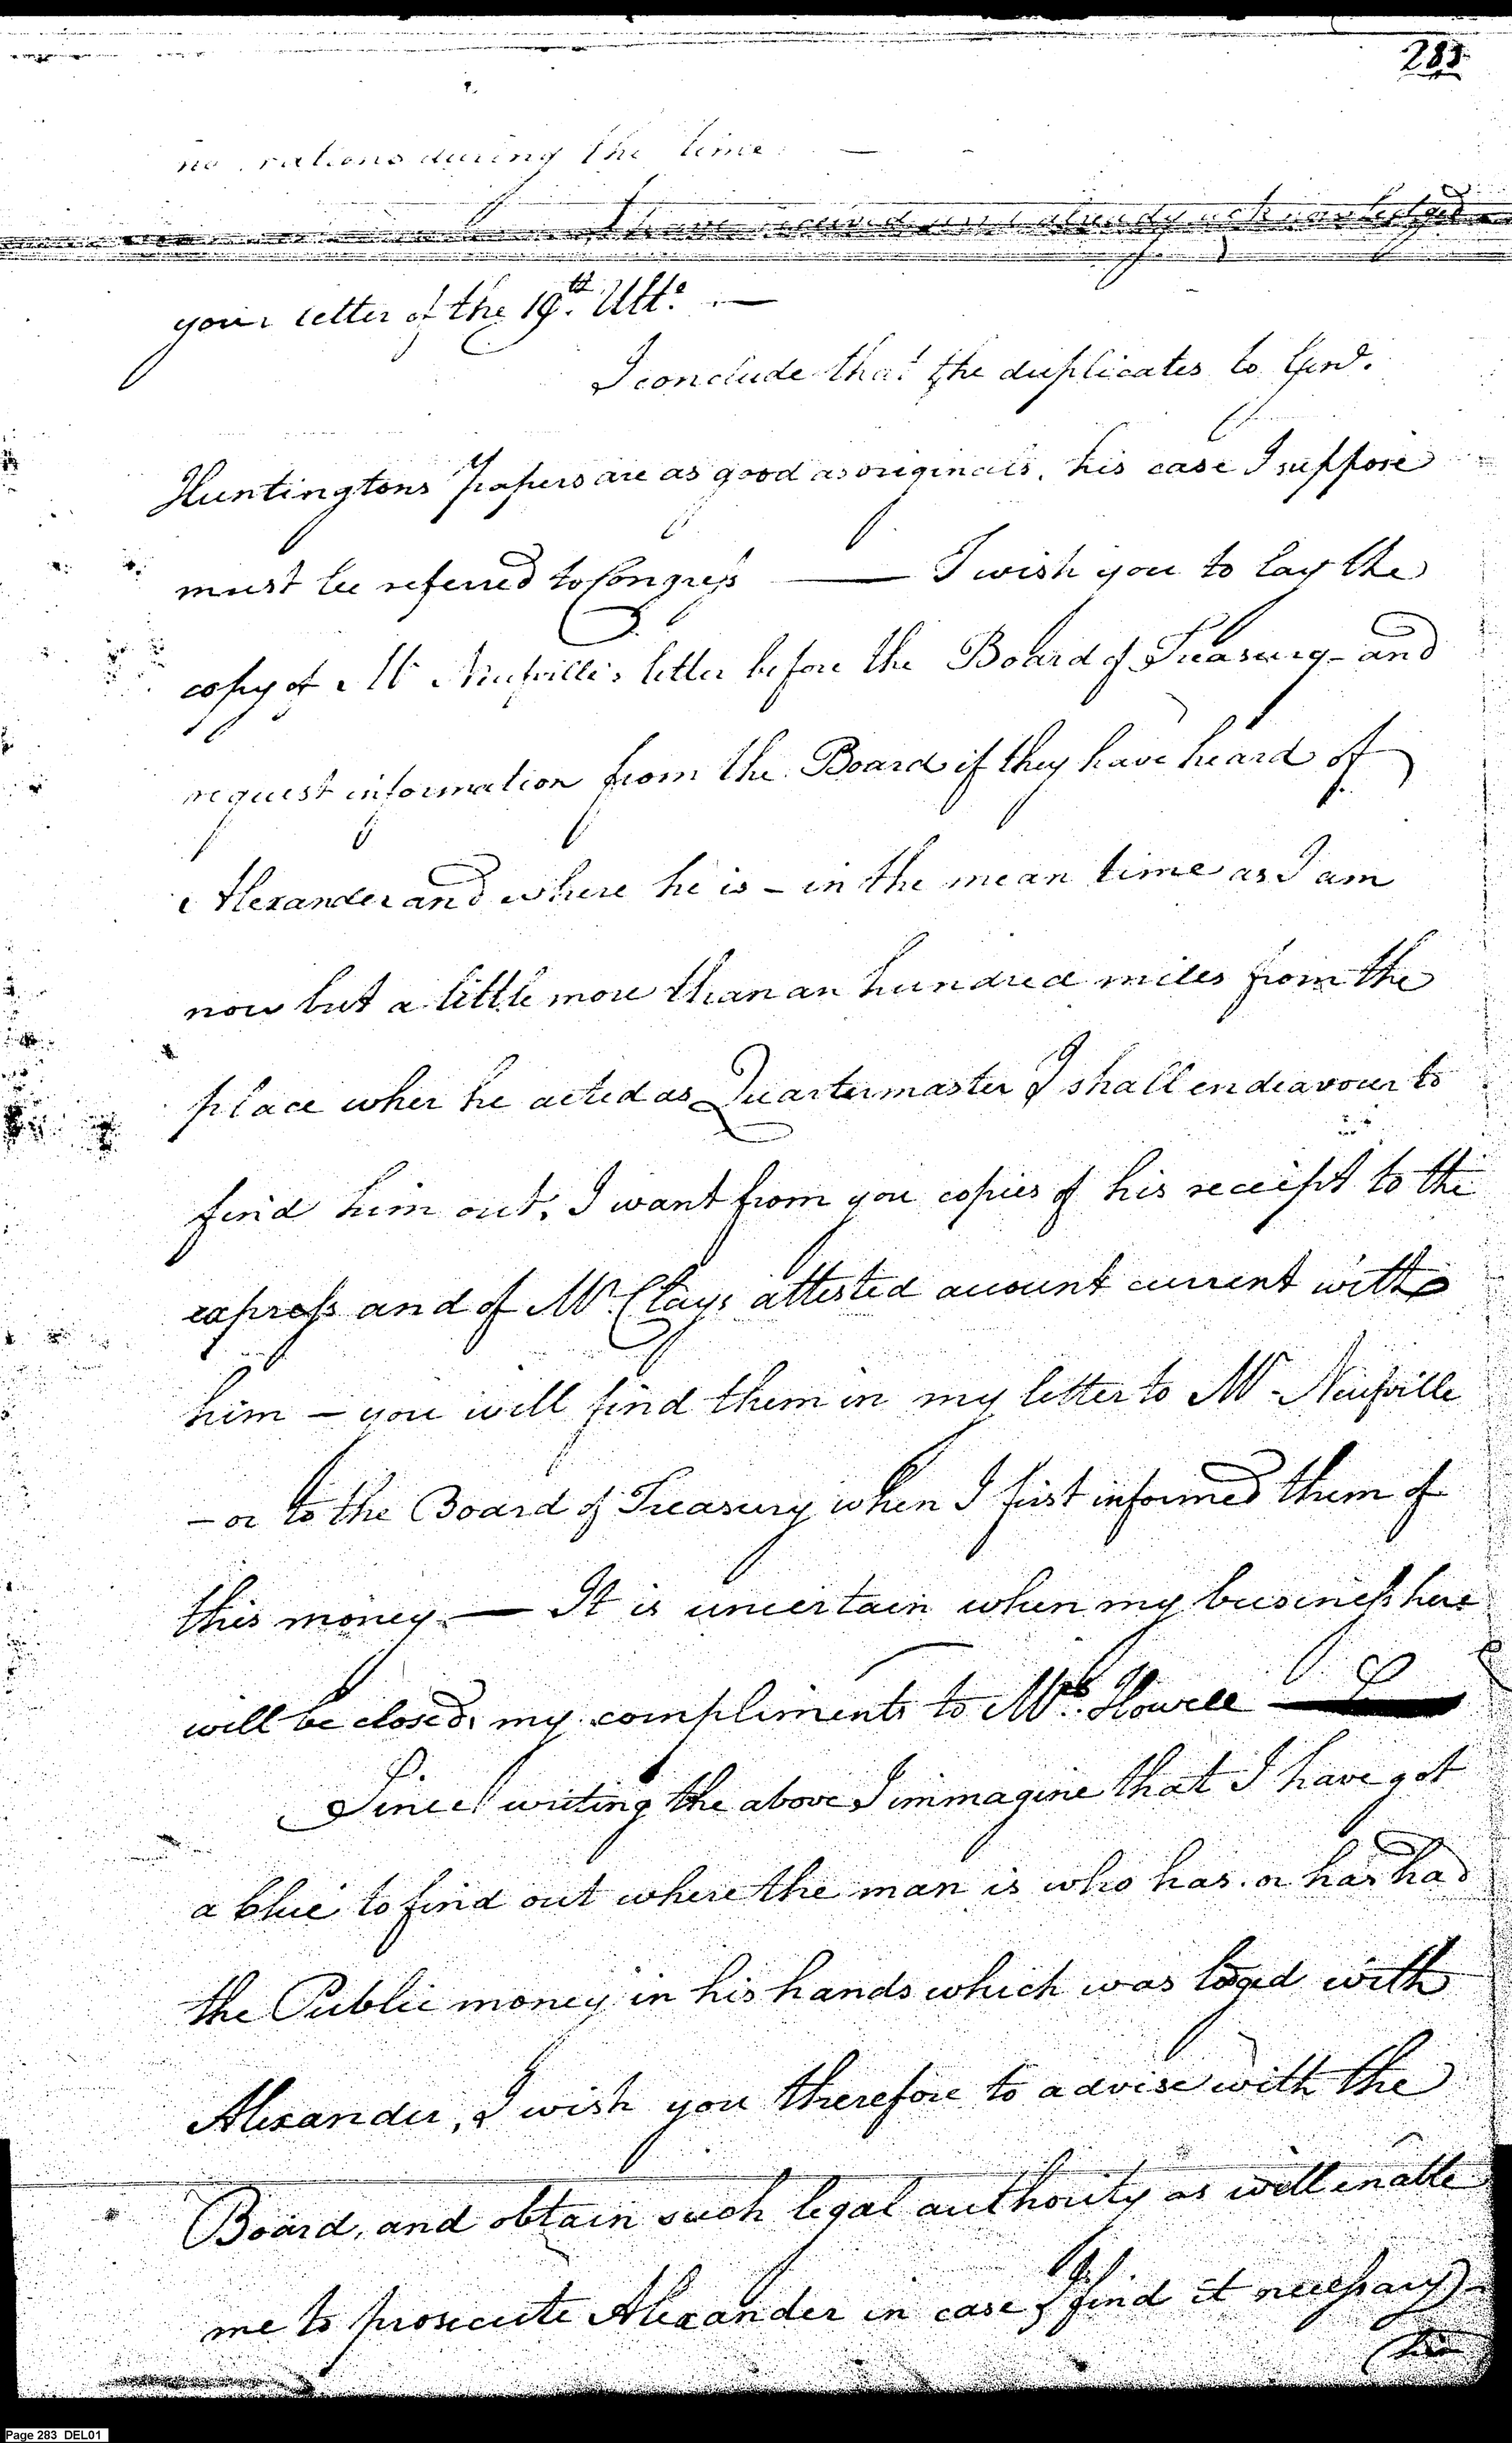 283
no rations during the time. —
I have received and already acknowledged
your letter of the 19th. Ulto. —
I conclude that the duplicates to
Huntingtons Papers are as good as originals, his case I suppose
must be referred to Congress — I wish you to lay the
copy of Mr Neufville's letter before the Board of Treasury - and
request information from the Board if they have heard of
Alexander and where he is - in the mean time as I am
now but a little more than an hundred miles from the
place wher he acted as Quartermaster I shall endeavour to
find him out, I want from you copies of his receipt to the
express and of Mr. Clays attested account current with
him — you will find them in my letter to Mr Neufville
- or to the Board of Treasury when I first informed them of
this money. — It is uncertain when my business here
will be closed, my compliments to Mrs. Howell —
Since writing the above I immagine that I have got
a clue to find out where the man is who has or has had
the Public money in his hands which was lodged with
Alexander, I wish you therefore to advise with the
Board, and obtain such legal authority as will enable
me to prosecute Alexander in case I find it necessary
Page 283 DEL01